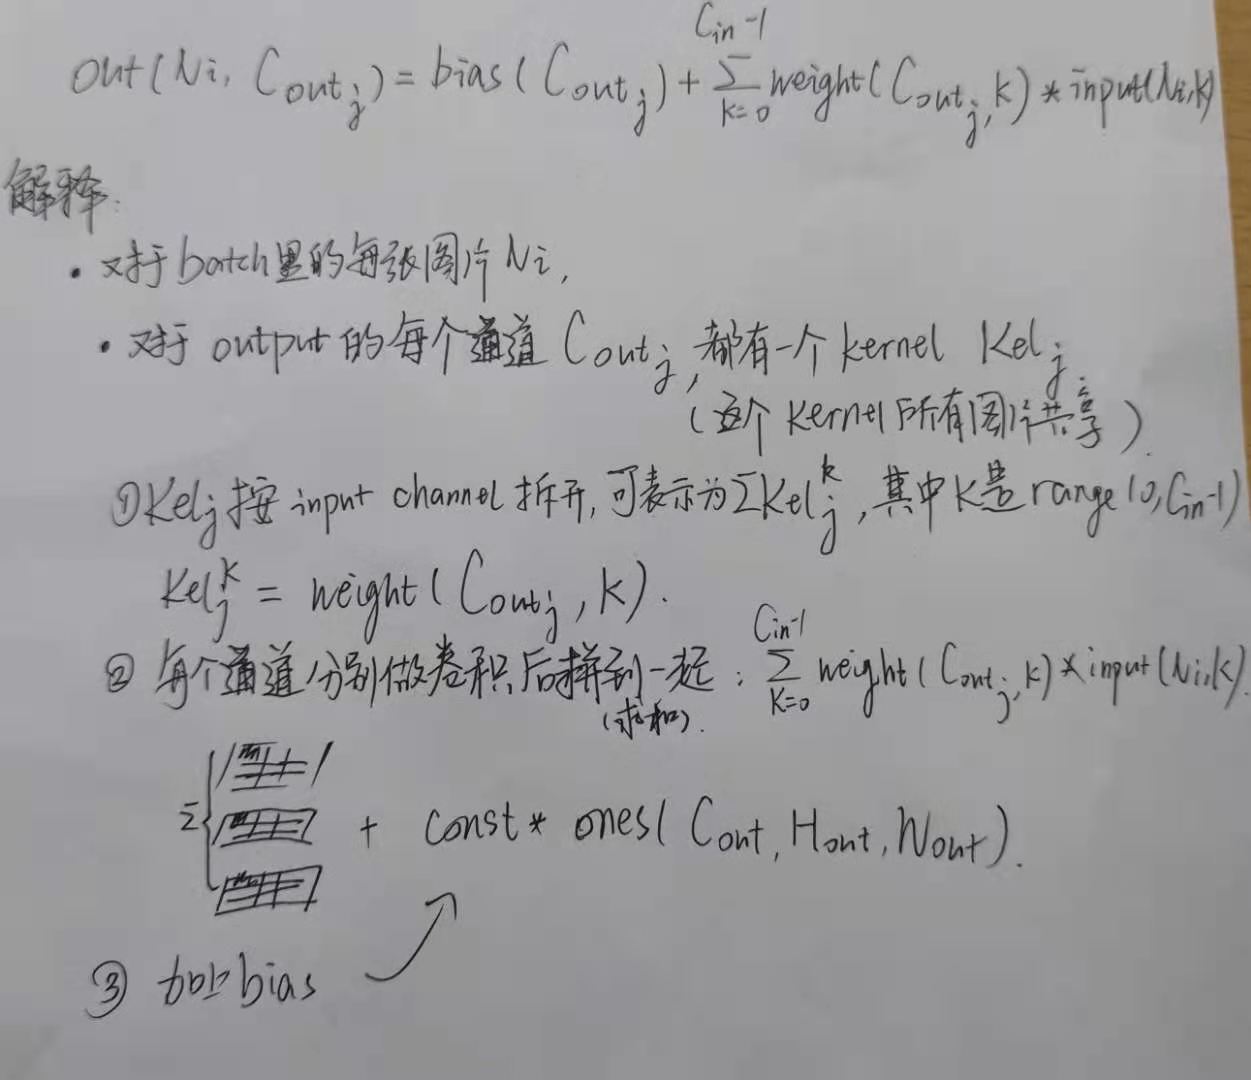 out(Ni, Cout_j) = bias(Cout_j) + Σ_{k=0}^{Cin-1} weight(Cout_j, k) * input(Ni, k)
解释:
· 对于batch里的每张图片Ni,
· 对于 output 的每个通道 Cout_j, 都有一个 kernel Kel_j.
(这个 kernel 所有图片共享).
① Kel_j 按 input channel 拆开, 可表示为 Σ Kel_j^k, 其中 k是 range(0, Cin-1)
Kel_j^k = weight(Cout_j, k).
② 每个通道分别做卷积后拼到一起: Σ_{k=0}^{Cin-1} weight(Cout_j, k) * input(Ni, k).
(求和).
Σ{ + const * ones(Cout, Hout, Wout).
③ 加上bias